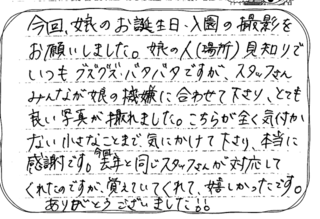 今回、娘のお誕生日・入園の撮影を
お願いしました。娘の人(場所)見知りで
いつもグズグズ・バタバタですが、スタッフさん
みんなが娘の機嫌に合わせて下さり、とても
良い写真が撮れました。こちらが全く気付か
ない小さなことまで気にかけて下さり、本当に
感謝です。今回去年と同じスタッフさんが対応して
くれたのですが、覚えていてくれて、嬉しかったです。
ありがとうございました!!